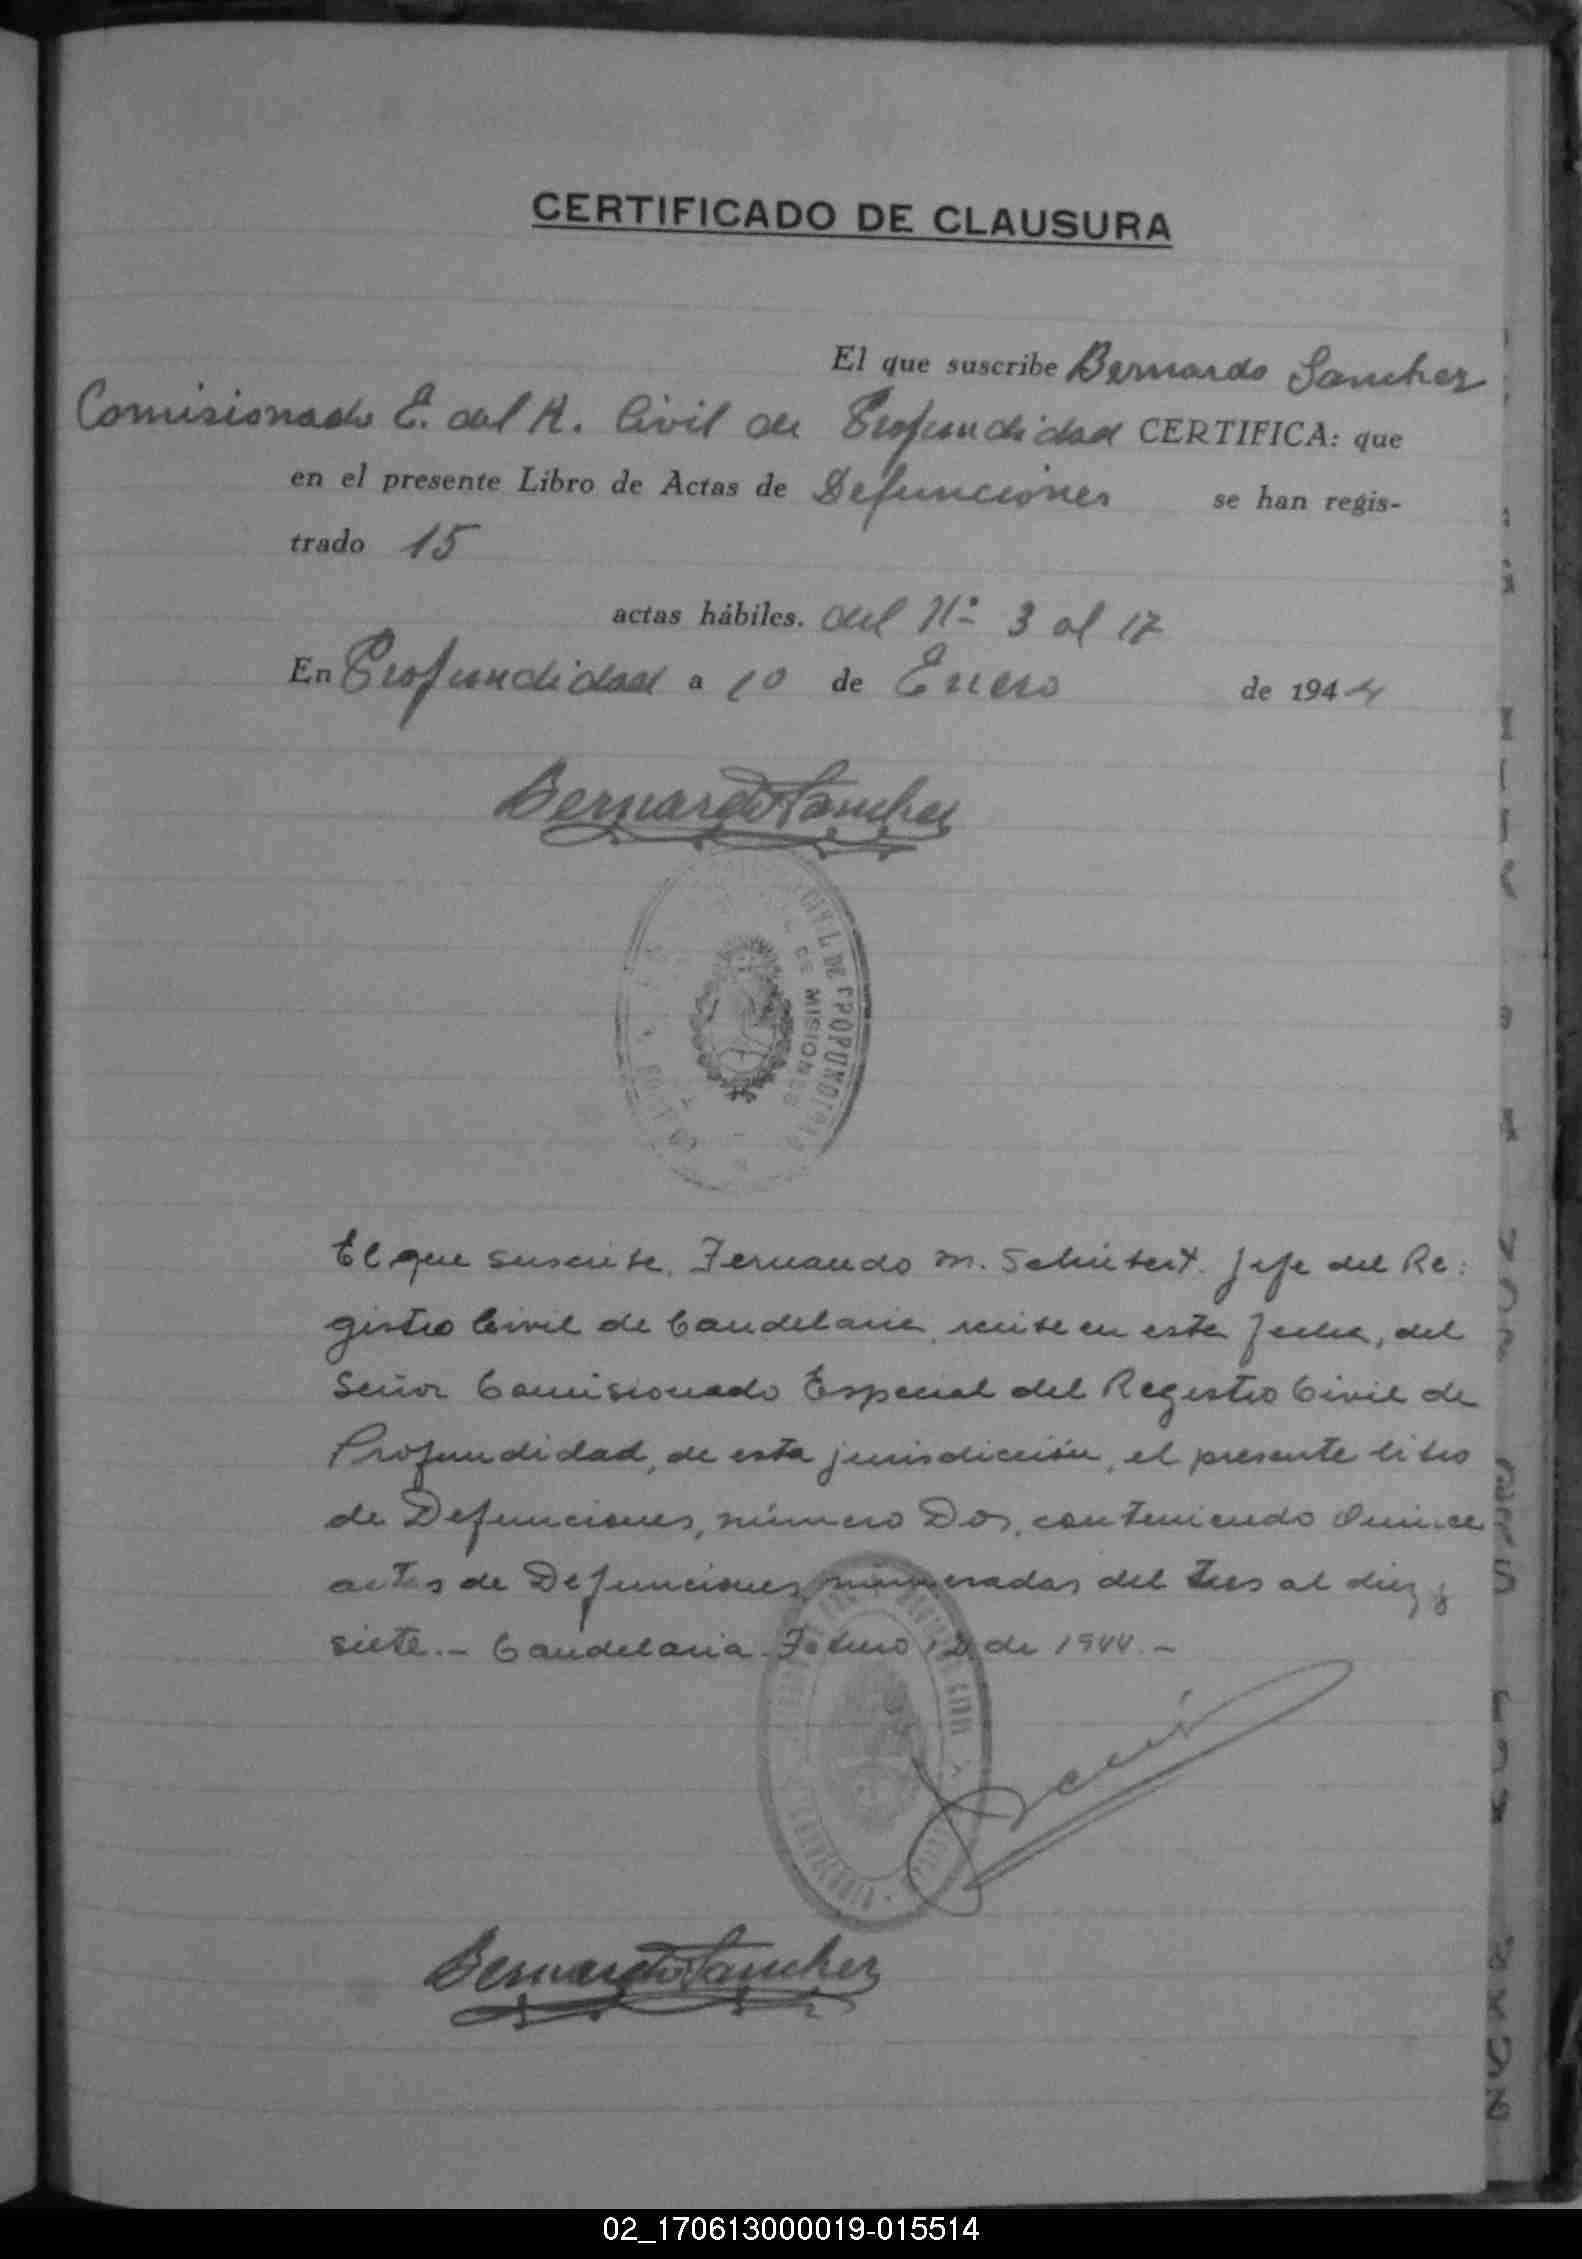 CERTIFICADO DE CLAUSURA
El que suscribe Bernardo Sanchez
Comisionado E. del R. Civil de Profundidad CERTIFICA: que
en el presente Libro de Actas de Defunciones se han regis-
trado 15
actas hábiles. del Nº 3 al 17
En Profundidad a 10 de Enero de 1944
Bernardo Sanchez
CIVIL DE PROFUNDIDAD
DE MISIONES
El que suscribe, Fernando M. Schubert. Jefe del Re-
gistro Civil de Candelaria, recibe en esta fecha, del
Señor Comisionado Especial del Registro Civil de
Profundidad, de esta jurisdicción, el presente libro
de Defunciones, número Dos, conteniendo Quince
actas de Defunciones, numeradas del tres al diez y
siete.- Candelaria. Febrero 12 de 1944.-
Bernardo Sanchez
02_170613000019-015514